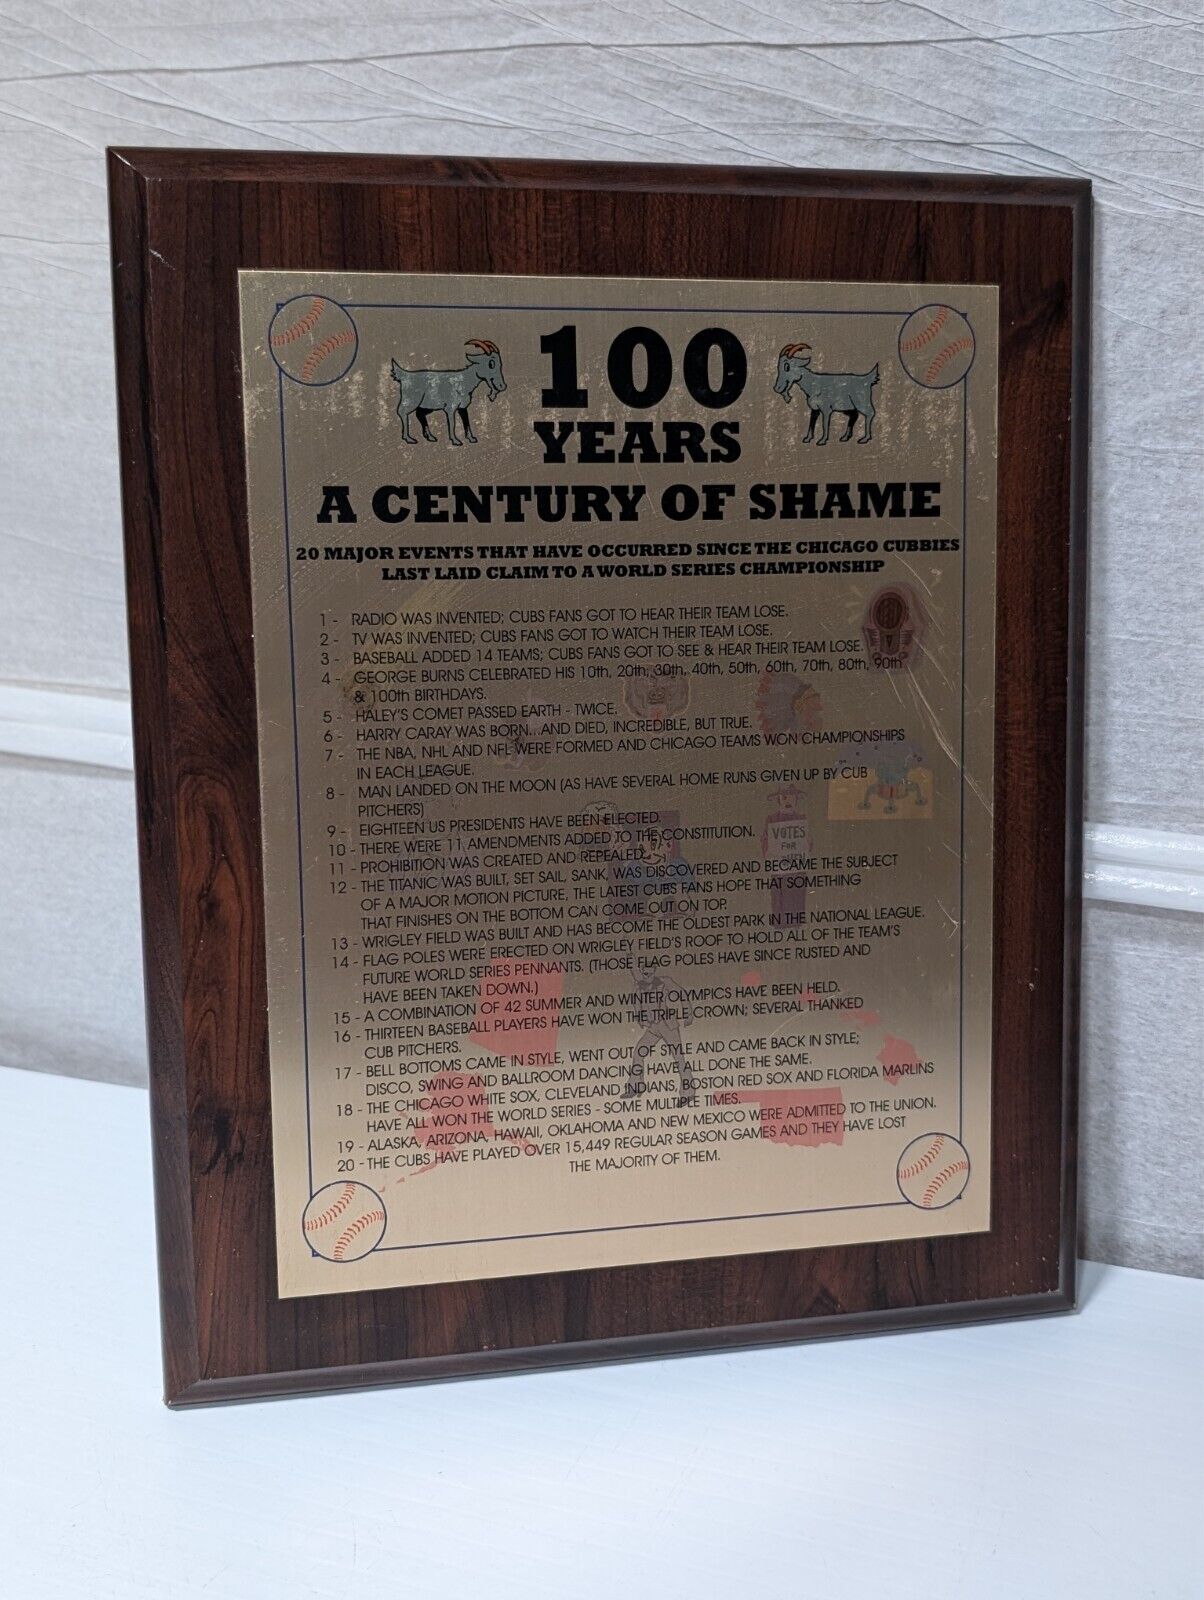 100
YEARS
A CENTURY OF SHAME
20 MAJOR EVENTS THAT HAVE OCCURRED SINCE THE CHICAGO CUBBIES
LAST LAID CLAIM TO A WORLD SERIES CHAMPIONSHIP
1 - RADIO WAS INVENTED; CUBS FANS GOT TO HEAR THEIR TEAM LOSE.
2 - TV WAS INVENTED; CUBS FANS GOT TO WATCH THEIR TEAM LOSE.
3 - BASEBALL ADDED 14 TEAMS; CUBS FANS GOT TO SEE & HEAR THEIR TEAM LOSE.
4 - GEORGE BURNS CELEBRATED HIS 10th, 20th, 30th, 40th, 50th, 60th, 70th, 80th, 90th
& 100th BIRTHDAYS.
5 - HALEY'S COMET PASSED EARTH - TWICE.
6 - HARRY CARAY WAS BORN...AND DIED, INCREDIBLE, BUT TRUE.
7 - THE NBA, NHL AND NFL WERE FORMED AND CHICAGO TEAMS WON CHAMPIONSHIPS
IN EACH LEAGUE.
8 - MAN LANDED ON THE MOON (AS HAVE SEVERAL HOME RUNS GIVEN UP BY CUB
PITCHERS)
9 - EIGHTEEN US PRESIDENTS HAVE BEEN ELECTED.
10 - THERE WERE 11 AMENDMENTS ADDED TO THE CONSTITUTION.
11 - PROHIBITION WAS CREATED AND REPEALED.
12 - THE TITANIC WAS BUILT, SET SAIL, SANK, WAS DISCOVERED AND BECAME THE SUBJECT
OF A MAJOR MOTION PICTURE, THE LATEST CUBS FANS HOPE THAT SOMETHING
THAT FINISHES ON THE BOTTOM CAN COME OUT ON TOP.
13 - WRIGLEY FIELD WAS BUILT AND HAS BECOME THE OLDEST PARK IN THE NATIONAL LEAGUE.
14 - FLAG POLES WERE ERECTED ON WRIGLEY FIELD'S ROOF TO HOLD ALL OF THE TEAM'S
FUTURE WORLD SERIES PENNANTS. (THOSE FLAG POLES HAVE SINCE RUSTED AND
HAVE BEEN TAKEN DOWN.)
15 - A COMBINATION OF 42 SUMMER AND WINTER OLYMPICS HAVE BEEN HELD.
16 - THIRTEEN BASEBALL PLAYERS HAVE WON THE TRIPLE CROWN; SEVERAL THANKED
CUB PITCHERS.
17 - BELL BOTTOMS CAME IN STYLE, WENT OUT OF STYLE AND CAME BACK IN STYLE;
DISCO, SWING AND BALLROOM DANCING HAVE ALL DONE THE SAME.
18 - THE CHICAGO WHITE SOX, CLEVELAND INDIANS, BOSTON RED SOX AND FLORIDA MARLINS
HAVE ALL WON THE WORLD SERIES - SOME MULTIPLE TIMES.
19 - ALASKA, ARIZONA, HAWAII, OKLAHOMA AND NEW MEXICO WERE ADMITTED TO THE UNION.
20 - THE CUBS HAVE PLAYED OVER 15,449 REGULAR SEASON GAMES AND THEY HAVE LOST
THE MAJORITY OF THEM.
VOTES
FOR